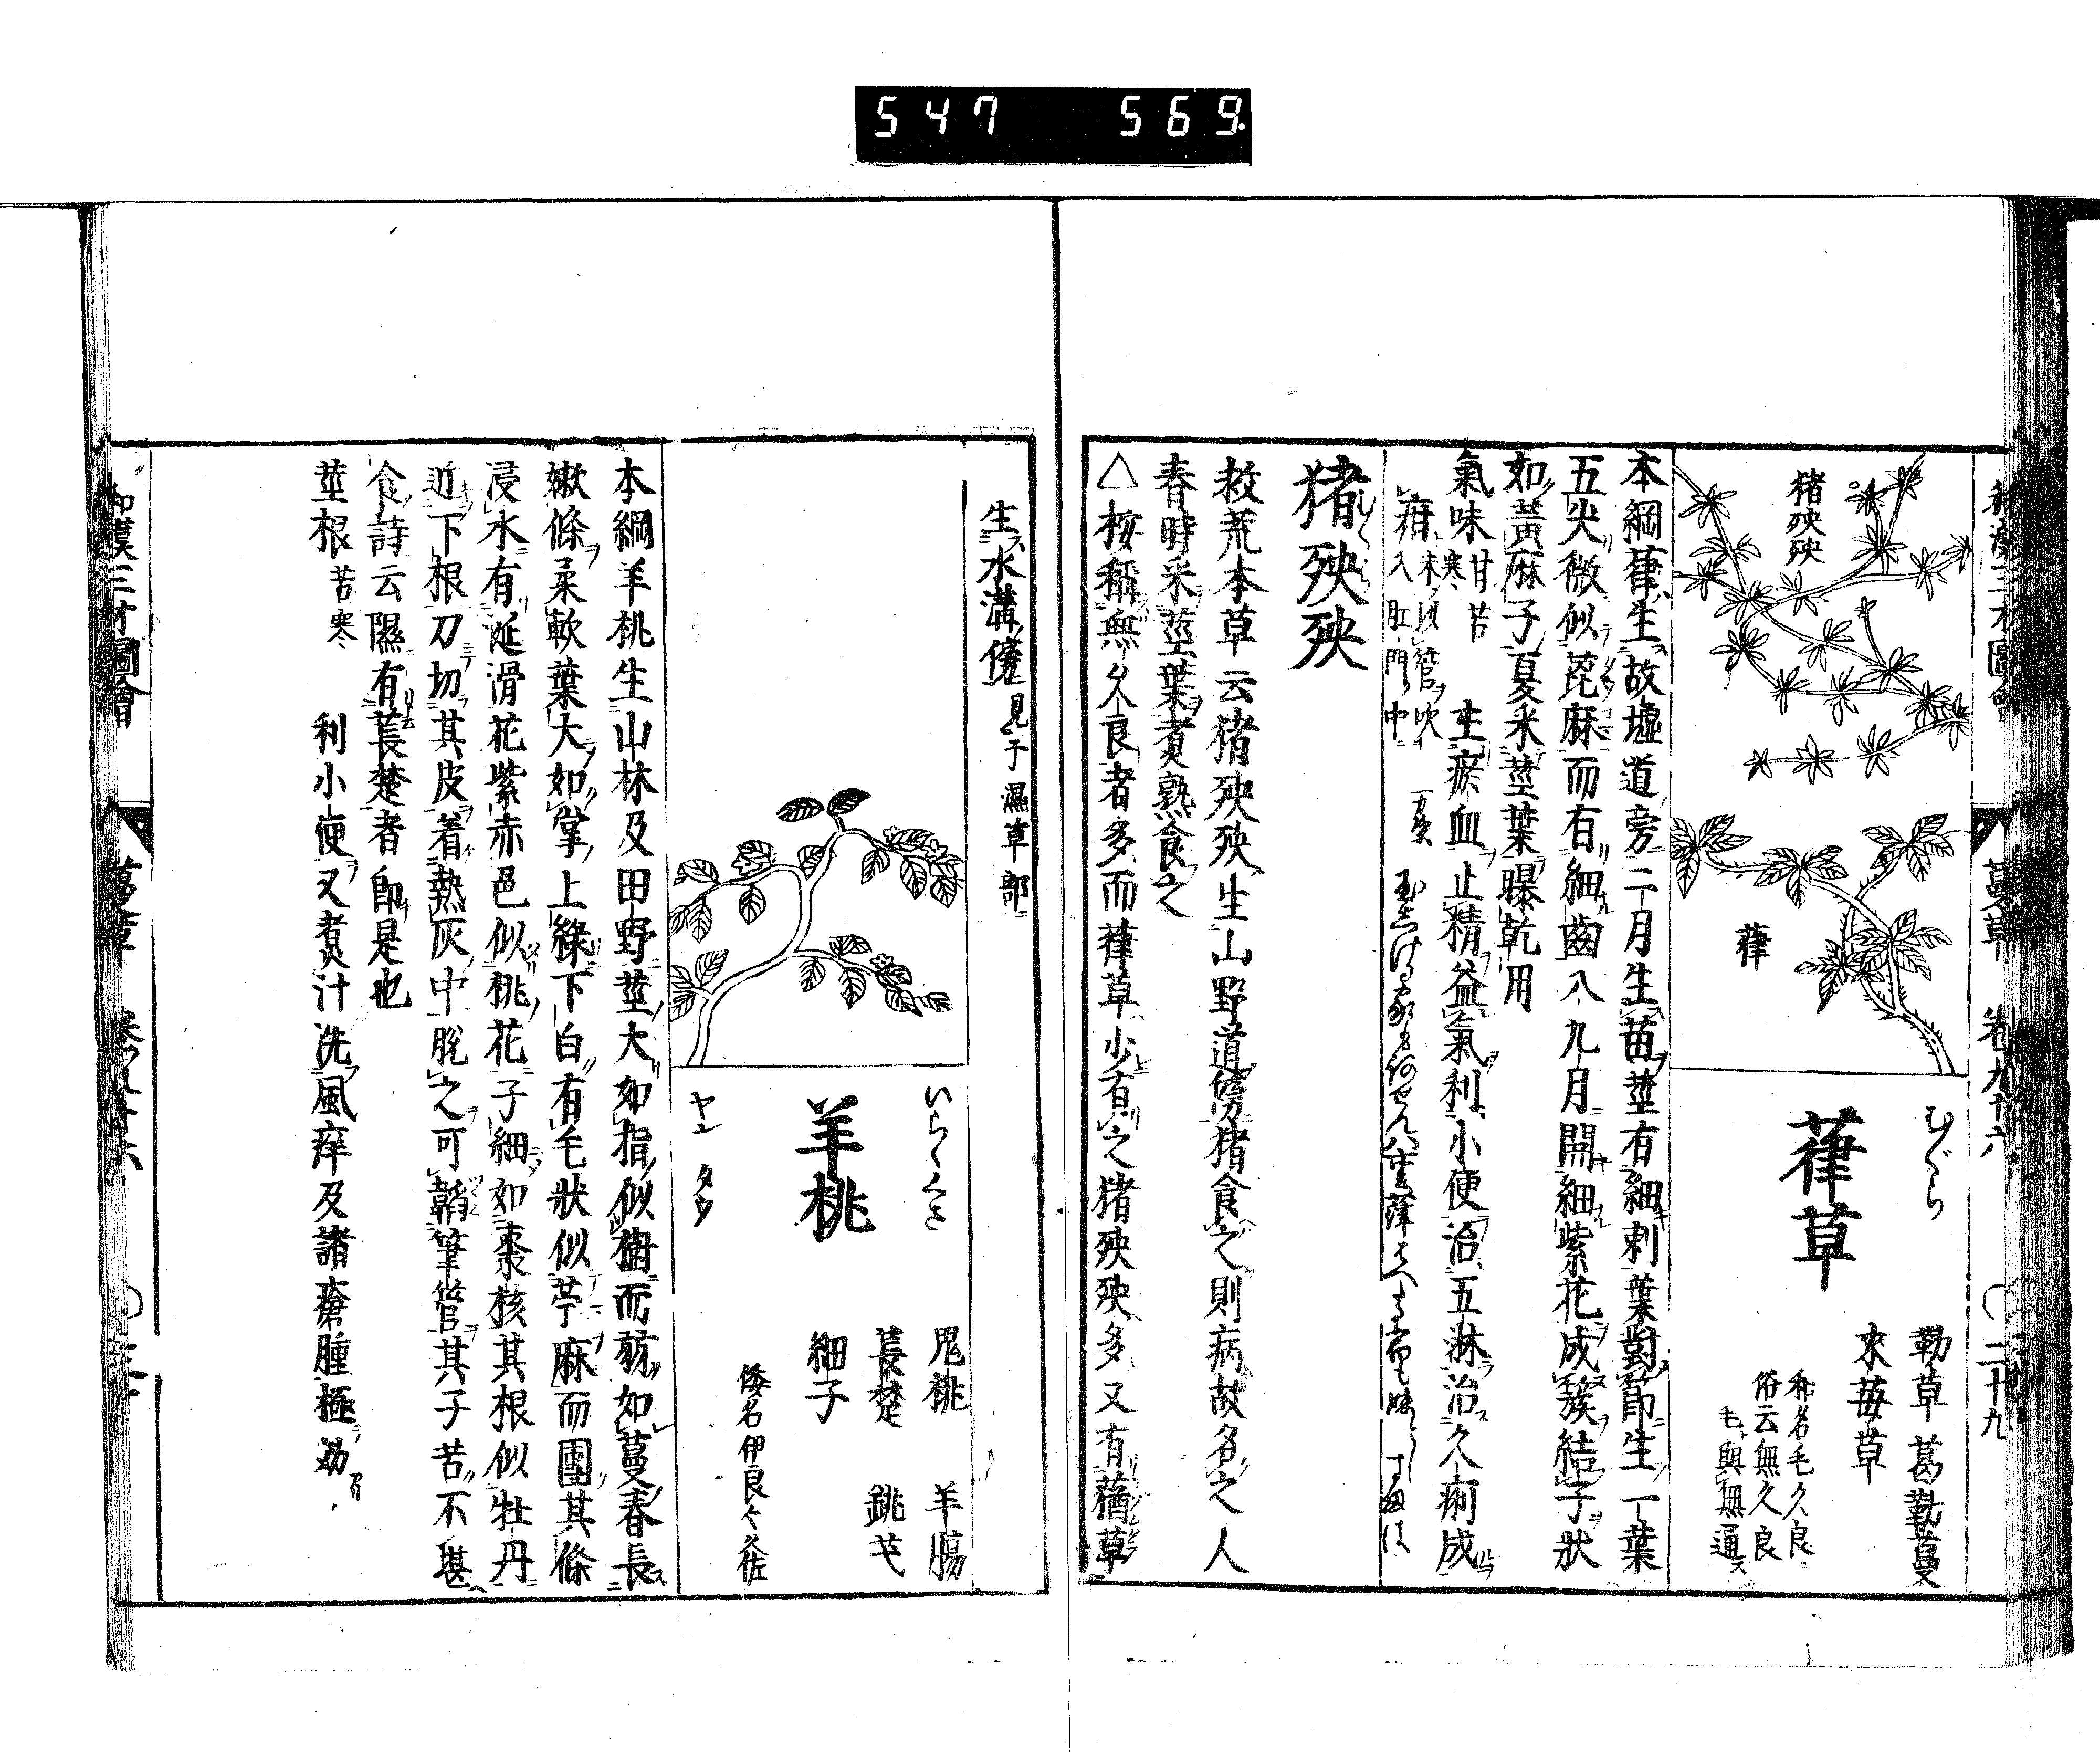 547 569
和漢三才圖會 蔓草 卷九十六 〇二十九
猪殃殃
葎
むぐら
葎草
勒草 葛勒蔓
來苺草
和名毛久良
俗云無久良
毛與無通ス
本綱葎生故墟道旁二月生苗莖有細刺葉對節生一葉
五尖微似蓖麻而有細齒八九月開細紫花成簇結子狀
如黃麻子夏米莖葉曝乾用
氣味甘苦寒 主瘀血止精益氣利小便治五淋治久痢成
疳末以管吹入肛門中
猪殃殃
救荒本草云猪殃殃生山野道傍猪食之則病故名之人
春時采莖葉煮熟食之
△按稱無久良者多而葎草少有之猪殃殃多又有蕕草
生水溝傍見于濕草部
いらくさ
羊桃
ヤン タウ
鬼桃 羊膓
萇楚 銚芅
細子
倭名伊良久佐
本綱羊桃生山林及田野莖大如指似樹而弱如蔓春長
嫩條柔軟葉大如掌上綠下白有毛狀似苧麻而團其條
浸水有涎滑花紫赤色似桃花子細如棗核其根似牡丹
近下根刀切其皮着熱灰中脫之可韜筆管其子苦不堪
食詩云隰有萇楚者卽是也
莖根苦寒 利小便又煮汁洗風痒及諸瘡腫極効
和漢三才圖會 蔓草 卷九十六 〇三十